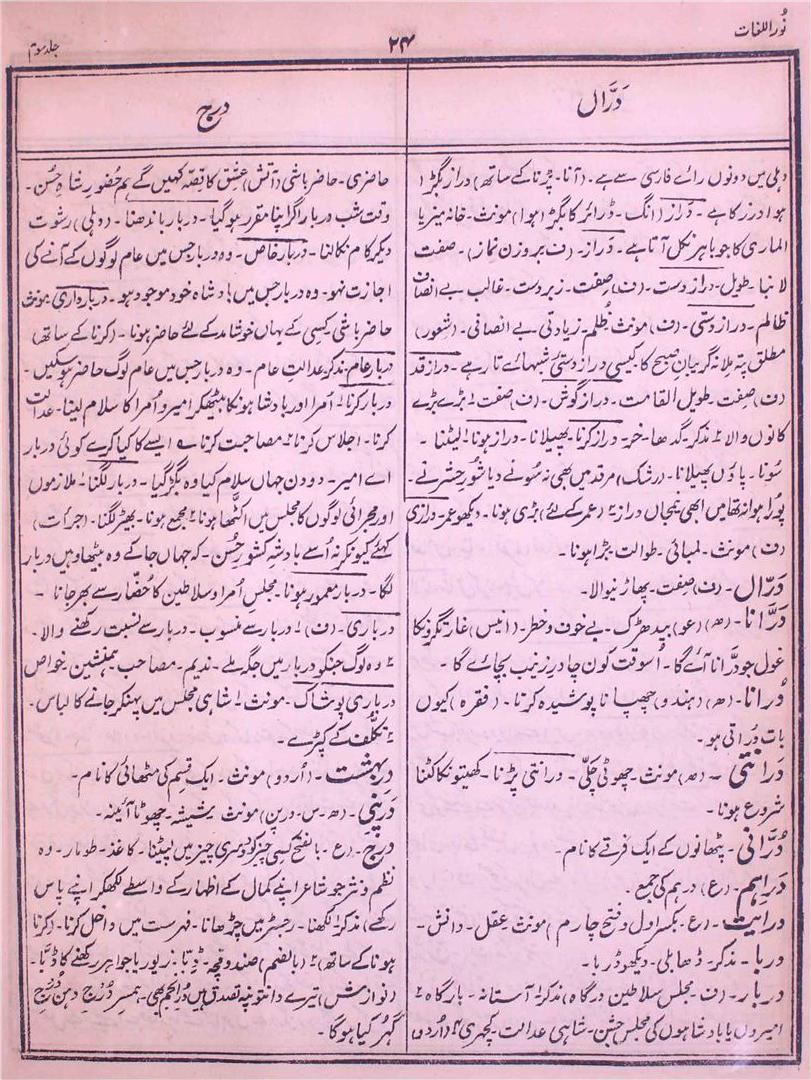 نُور اللغات
۲۴
جلد سوم
دَرَّاں
درج
دہلی میں دونوں رائے فارسی سے ہے۔ (آنا۔ پڑنا کے ساتھ) دراز بگڑا
ہوا درز کا ہے۔ دَراز (انگ۔ ڈرائر کا بگڑا ہوا) مونث۔ خانہ میز یا
الماری کا جو باہر نکل آتا ہے۔ دَراز۔ (ف بر وزن نماز)۔ صفت
لانبا۔ طویل۔ دراز دست۔ (ف) صفت۔ زبردست۔ غالب بے انصاف
ظالم۔ دراز دستی۔ (ف) مونث ظُلم۔ زیادتی بے انصافی۔ (شعور)
مطلق پتہ ملا نہ گریبان صبح کا۔ کیسی دراز دستیٔ شبہائے تار ہے۔ دراز قد
(ف) صفت۔ طویل القامت۔ دراز گوش۔ (ف) صفت ۱ بڑے بڑے
کانوں والا ۲ مذکر۔ گدھا۔ خر۔ دراز کرنا۔ پھیلانا۔ دراز ہونا ۱ لیٹنا۔
سونا۔ پاؤں پھیلانا۔ (رشک) مرقد میں بھی نہ سونے دیا شورِ حشر نے۔
پورا ہوا نہ تھا میں ابھی نیمجاں دراز ۲ (عمر کے لئے) بڑی ہونا۔ دیکھو عمر۔ درازی
(ف) مونث۔ لمبائی۔ طوالت بڑا ہونا۔
درّاں۔ (ف) صفت۔ پھاڑنیوالا۔
دَرَّانا۔ (ھ) (عو) بیدھڑک۔ بے خوف و خطر۔ (انیس) غارتگرونکا
غول جو درّانا آئے گا۔ اُسوقت کون چادرِ زینب بچائے گا۔
دُرانا۔ (ھ) (ہندو) چھپانا پوشیدہ کرنا۔ (فقرہ) کیوں
بات دُراتی ہو۔
دَرانتی۔ (ھ) مونث۔ چھوٹی چکّی۔ درانتی پڑنا۔ کھیتونکا کٹنا
شروع ہونا۔
دُرّانی۔ پٹھانوں کے ایک فرقے کا نام۔
دَراہم۔ (ع) درہم کی جمع۔
درایت۔ (ع۔ بکسر اول و فتح چارم) مونث عقل۔ دانش۔
دربا۔ مذکر۔ ڈھابلی۔ دیکھو ڈربا۔
دربار۔ (ف۔ مجلس سلاطین درگاہ) مذکر ۱ آستانہ۔ بارگاہ ۲
امیروں یا بادشاہوں کی مجلس جشن۔ شاہی عدالت۔ کچہری ۳ (اردو)
حاضری۔ حاضر باشی (آتش) عشق کا قصّہ کہیں گے ہم حُضورِ شاہِ حُسن۔
وقت شب دربار اگر اپنا مقرر ہو گیا۔ دربار باندھنا۔ (دہلی) رشوت
دیکر کام نکالنا۔ دربار خاص۔ وہ دربار جس میں عام لوگوں کے آنے کی
اجازت نہو۔ وہ دربار جس میں بادشاہ خود موجود ہو۔ دربارداری مونث
حاضر باشی کسی کے یہاں خوشامد کے لئے حاضر ہونا۔ (کرنا کے ساتھ)
دربار عام۔ مذکر عدالتِ عام۔ وہ دربار جس میں عام لوگ حاضر ہو سکیں۔
دربار کرنا ۱ اُمرا اور بادشاہونکا بیٹھکر امیر و اُمرا کا سلام لینا۔ عدالت
کرنا۔ اجلاس کرنا ۲ مصاحبت کرنا ؎ ایسے کا کیا کرے کوئی دربار
اے امیر۔ دو دن جہاں سلام کیا وہ بگڑ گیا۔ دربار لگنا ۱ ملازموں
اور مجرائی لوگوں کا مجلس میں اکٹھا ہونا ۲ مجمع ہونا۔ بھیڑ لگنا۔ (جرأت)
کہئے کیونکر نہ اُسے بادشہِ کشورِ حُسن۔ کہ جہاں جا کے وہ بیٹھا وہیں دربار
لگا۔ دربار معمور ہونا۔ مجلس اُمرا و سلاطین کا حُضار سے بھر جانا۔
درباری۔ (ف) ۱ دربار سے منسوب۔ دربار سے نسبت رکھنے والا۔
۲ وہ لوگ جنکو دربار میں جگہ ملے۔ ندیم۔ مصاحب۔ ہمنشین۔ خواص
درباری پوشاک۔ مونث ۱ شاہی مجلس میں پہنکر جانے کا لباس۔
۲ تکلف کے کپڑے۔
دَرِبہشت۔ (اُردو) مونث۔ ایک قسم کی مٹھائی کا نام۔
دَرپنی۔ (ھ۔ س۔ درپن) مونث۔ شیشہ۔ چھوٹا آئینہ۔
دَرج۔ (ع۔ بالفتح کسی چیز کو دوسری چیز میں لپیٹنا۔ کاغذ۔ طومار۔ وہ
نظم و نثر جو شاعر اپنے کمال کے اظہار کے واسطے لکھکر اپنے پاس
رکھے) مذکر ۱ لکھنا۔ رجسٹر میں چڑھانا۔ فہرست میں داخل کرنا۔ (کرنا
ہونا کے ساتھ) ۲ (بالضم) صندوقچہ۔ ڈبّا۔ زیور یا جواہر رکھنے کا ڈبّا۔
(نوازش) تیرے دانتونپہ تصدّق ہیں دُرِ انجم بھی۔ ہمسرِ دُرج دہن دُرجِ
گہر کیا ہوگا۔